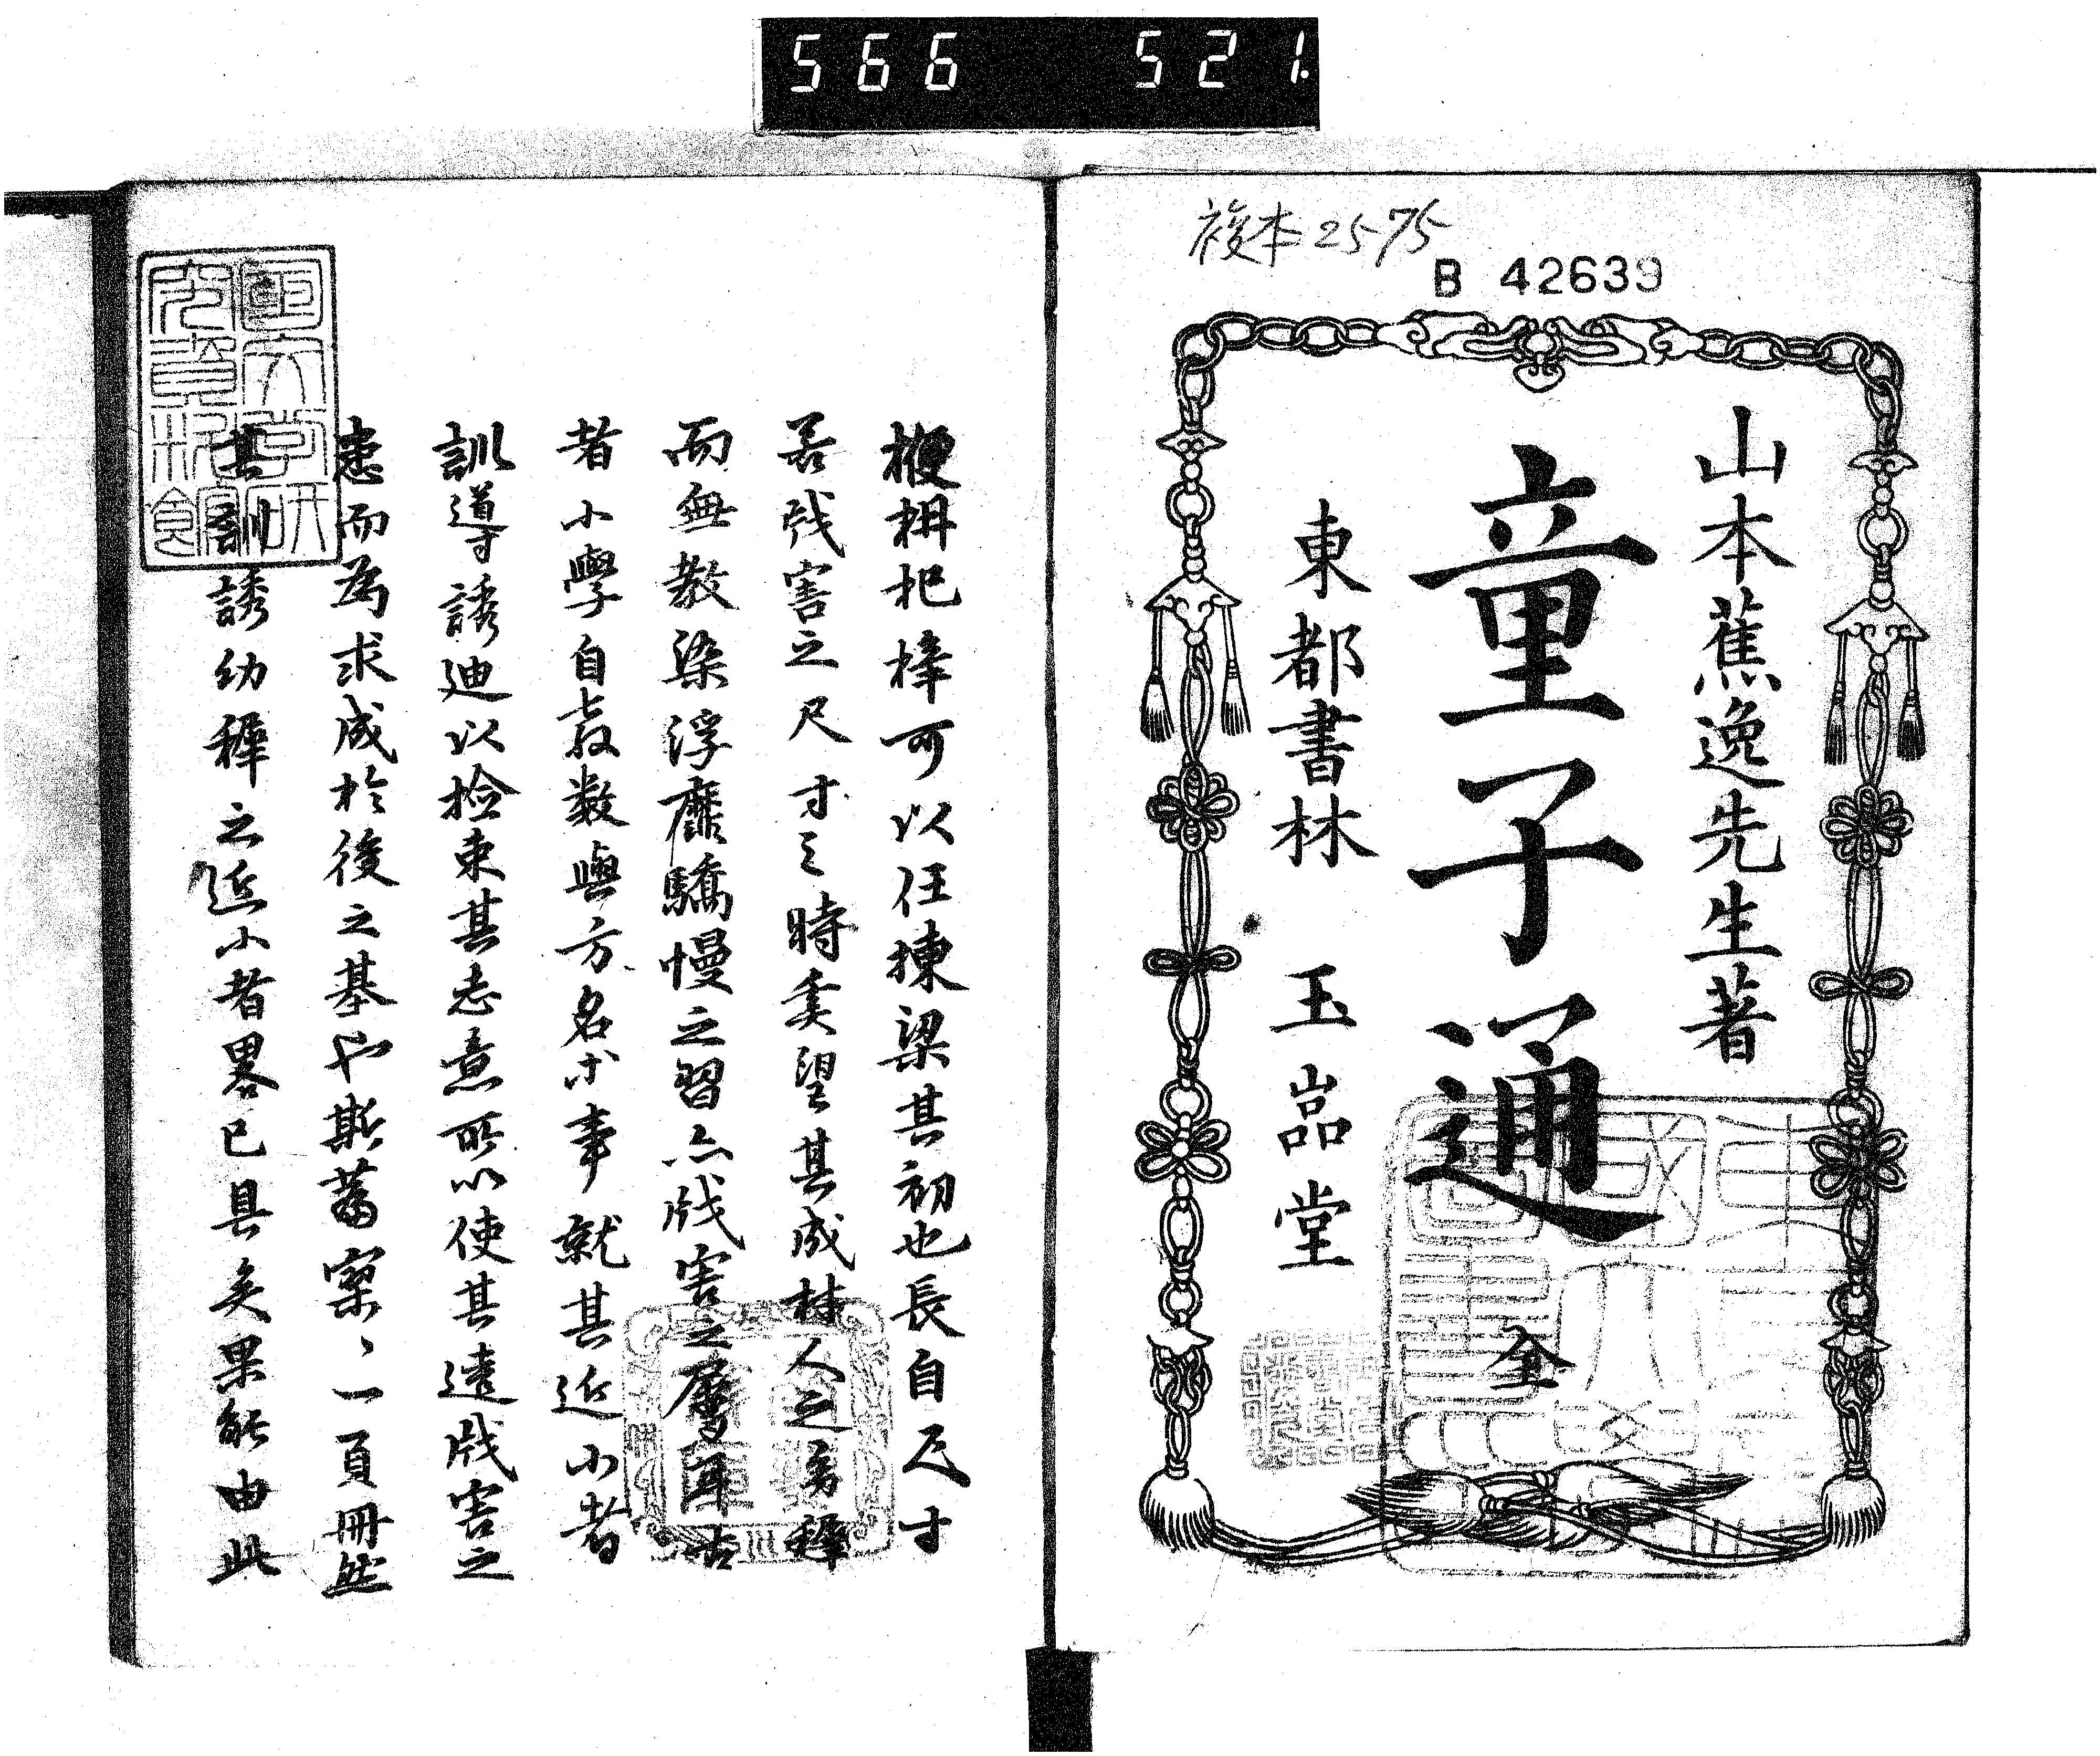 566 521.
複本 25-75
B 42639
山本蕉逸先生著
童子通
全
東都書林 玉嵒堂
楩枏杞梓可以任棟梁其初也長自尺寸
若戕害之尺寸之時奚望其成材人之幼穉
而無教染浮靡驕慢之習亦戕害之層耳古
者小學自教數與方名小事就其近小者
訓導誘迪以撿束其志意所以使其遠戕害之
患而為求成於後之基也斯蕃窠〻一頁冊然
其訓誘幼穉之近小者畧已具矣果能由此